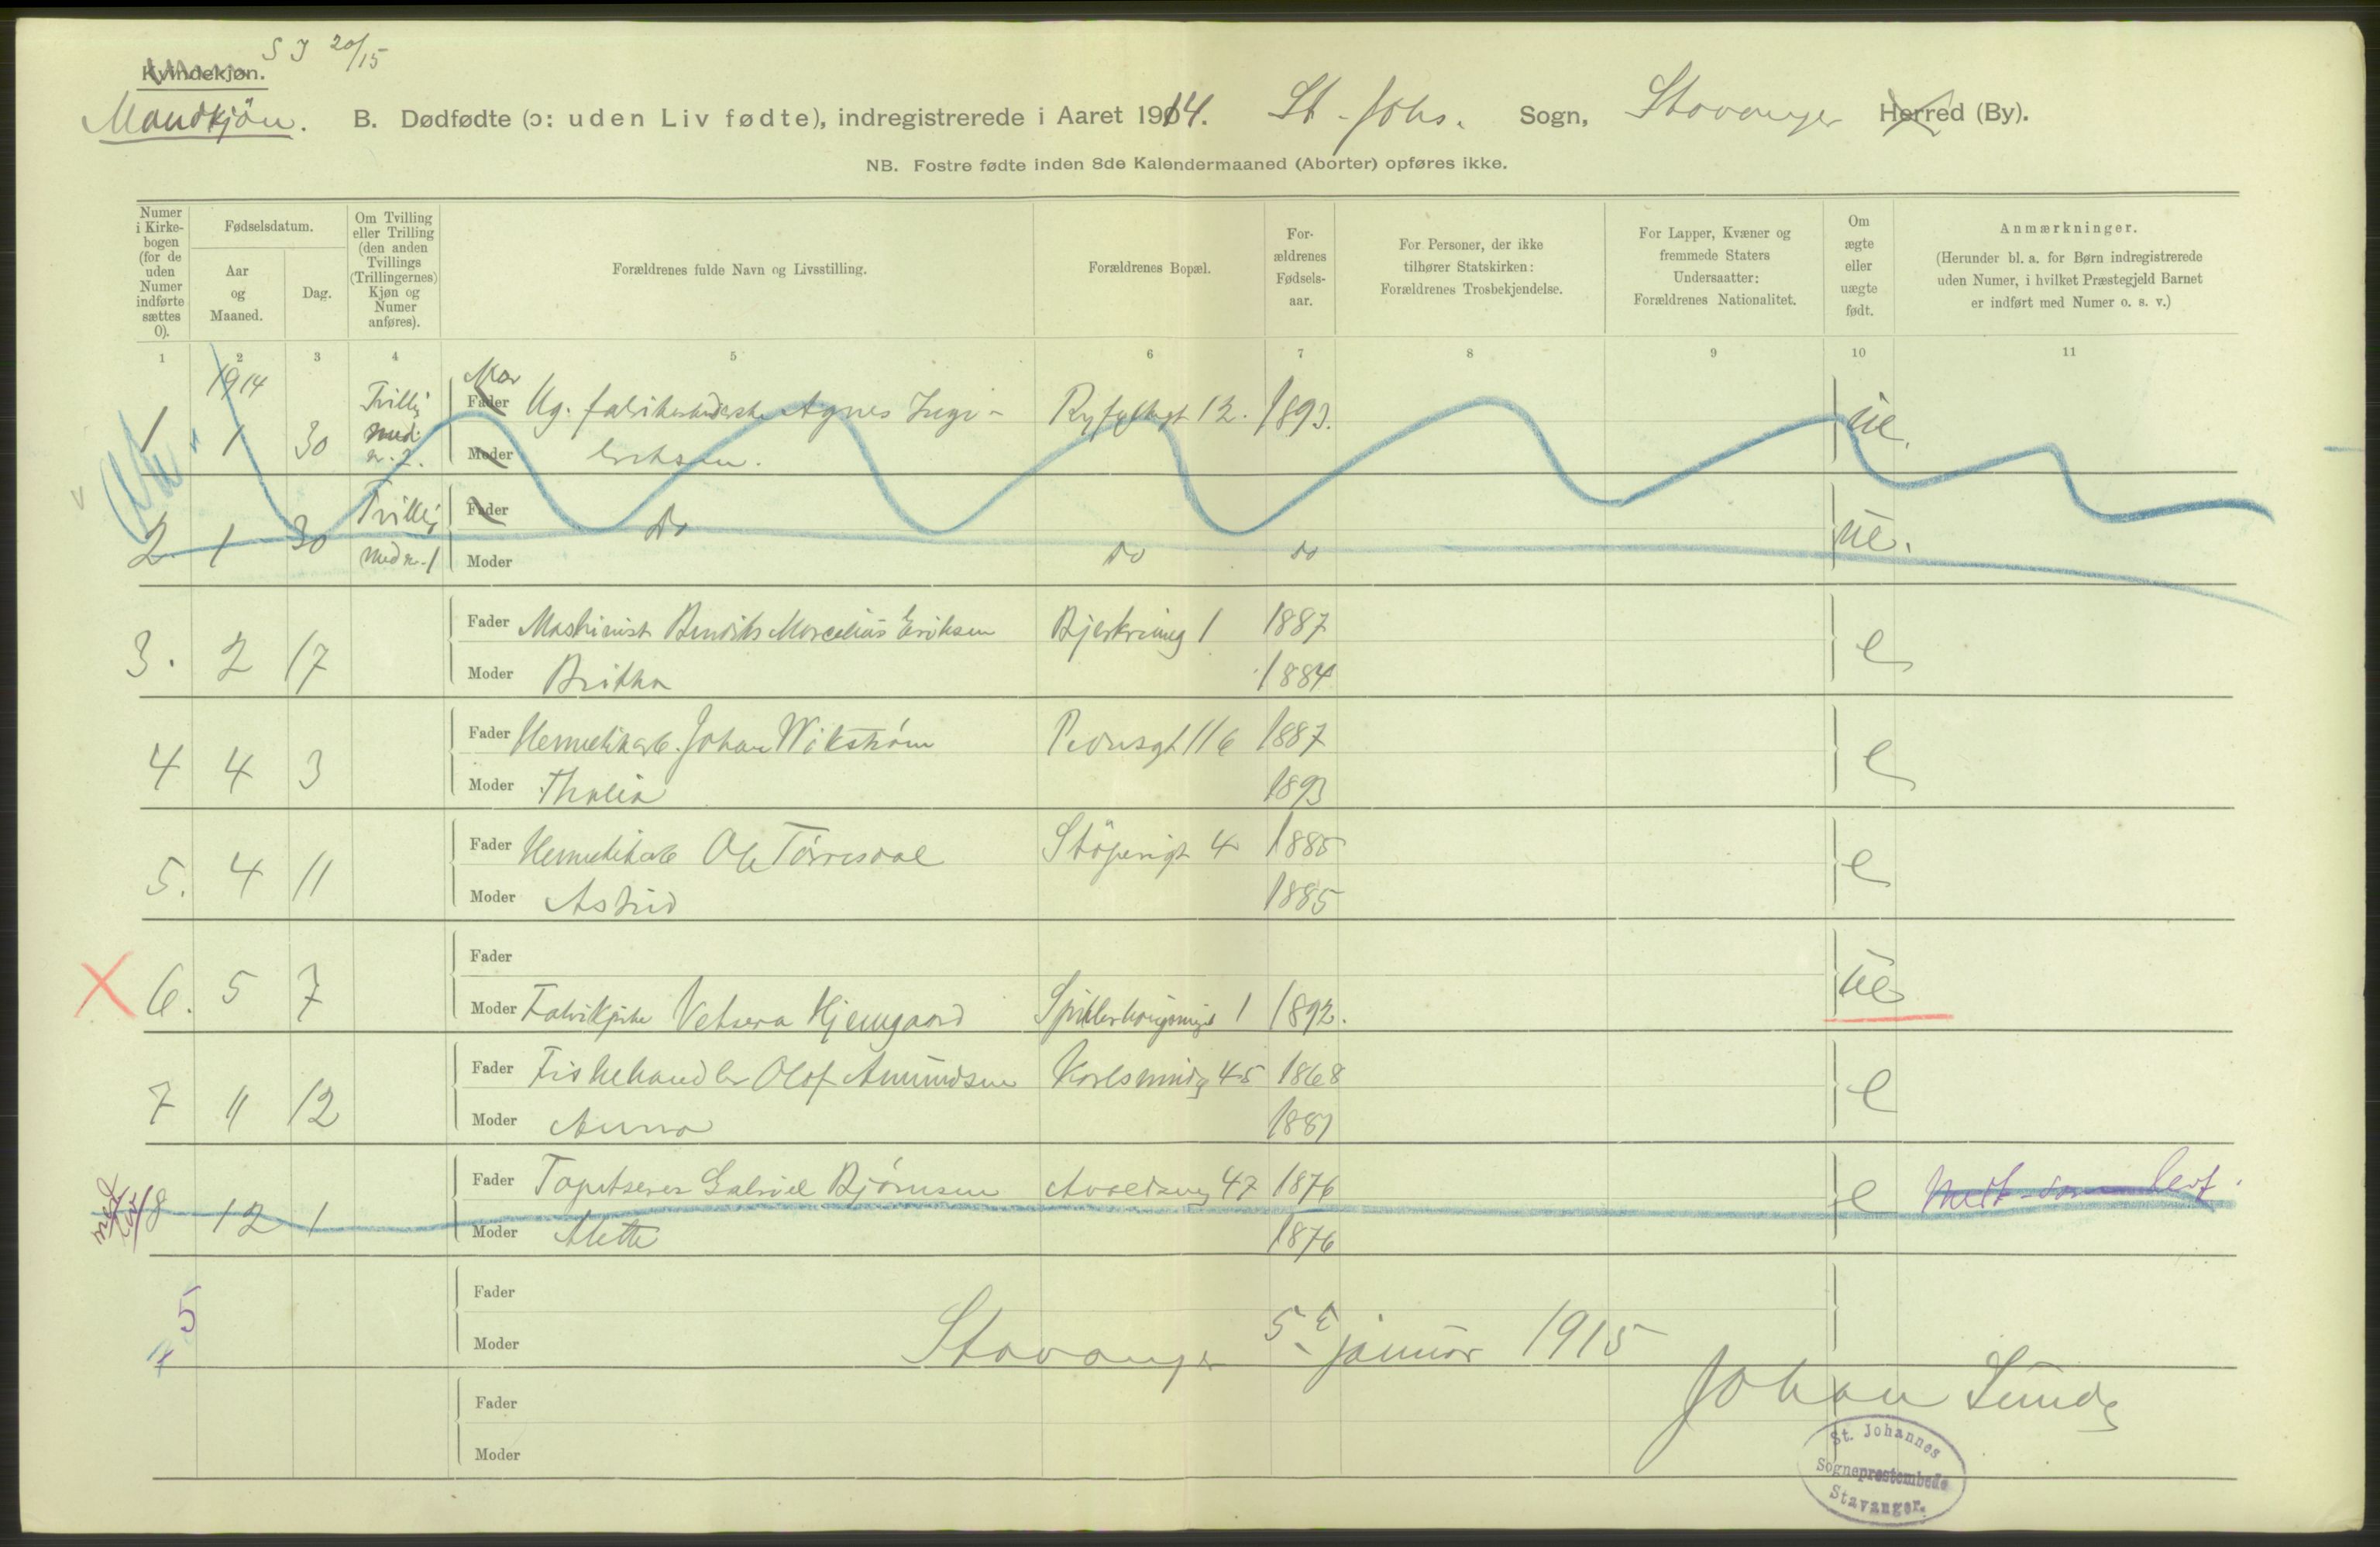 S J 20/15
Kvindekjøn.
Mandkjøn. B. Dødfødte (ɔ: uden Liv fødte), indregistrerede i Aaret 1914. St. Johs. Sogn, Stavanger Herred (By).
NB. Fostre fødte inden 8de Kalendermaaned (Aborter) opføres ikke.
Numer i Kirkebogen (for de uden Numer indførte sættes 0).
Fødselsdatum.
Aar og Maaned.
Dag.
Om Tvilling eller Trilling (den anden Tvillings (Trillingernes) Kjøn og Numer anføres).
Forældrenes fulde Navn og Livsstilling.
Forældrenes Bopæl.
Forældrenes Fødselsaar.
For Personer, der ikke tilhører Statskirken: Forældrenes Trosbekjendelse.
For Lapper, Kvæner og fremmede Staters Undersaatter: Forældrenes Nationalitet.
Om ægte eller uægte født.
Anmærkninger.
(Herunder bl. a. for Børn indregistrerede uden Numer, i hvilket Præstegjeld Barnet er indført med Numer o. s. v.)
1 2 3 4 5 6 7 8 9 10 11
1914
1 1 30 Tvillig med n. 2. Mor Fader Ug. Agnes Ingr- 12. 1893. ue.
Moder Eriksen.
2 1 30 Tvillig med n. 1 Fader do
Moder do do ue.
3. 2 17 Fader Maskinist Bendiks Marcelius Eriksen Bjerkreimg 1 1887 e
Moder Britha 1884
4 4 3 Fader Hermetikarb. Johan Wikstrøm Pedersgt 116 1887 e
Moder Thalia 1893
5. 4 11 Fader Hermetikarb Ole Tørresdal Støperigt 4 1885 e
Moder Astrid 1885
6. 5 7 Fader
Moder Fabrikpike Hjemgaard 1 1892. ue
7 11 12 Fader Fiskehandler Olaf Amundsen Karlsmindeg 45 1868 e
Moder Anna 1881
8 12 1 Fader Tapetserer Gabriel Bjørnsen Avaldsnesg 47 1876 e
Moder Mette 1876
5 Fader
Moder Stavanger 5 januar 1915
Fader Johan Lunde
Moder
St. Johannes
Sogneprestembede
Stavanger.